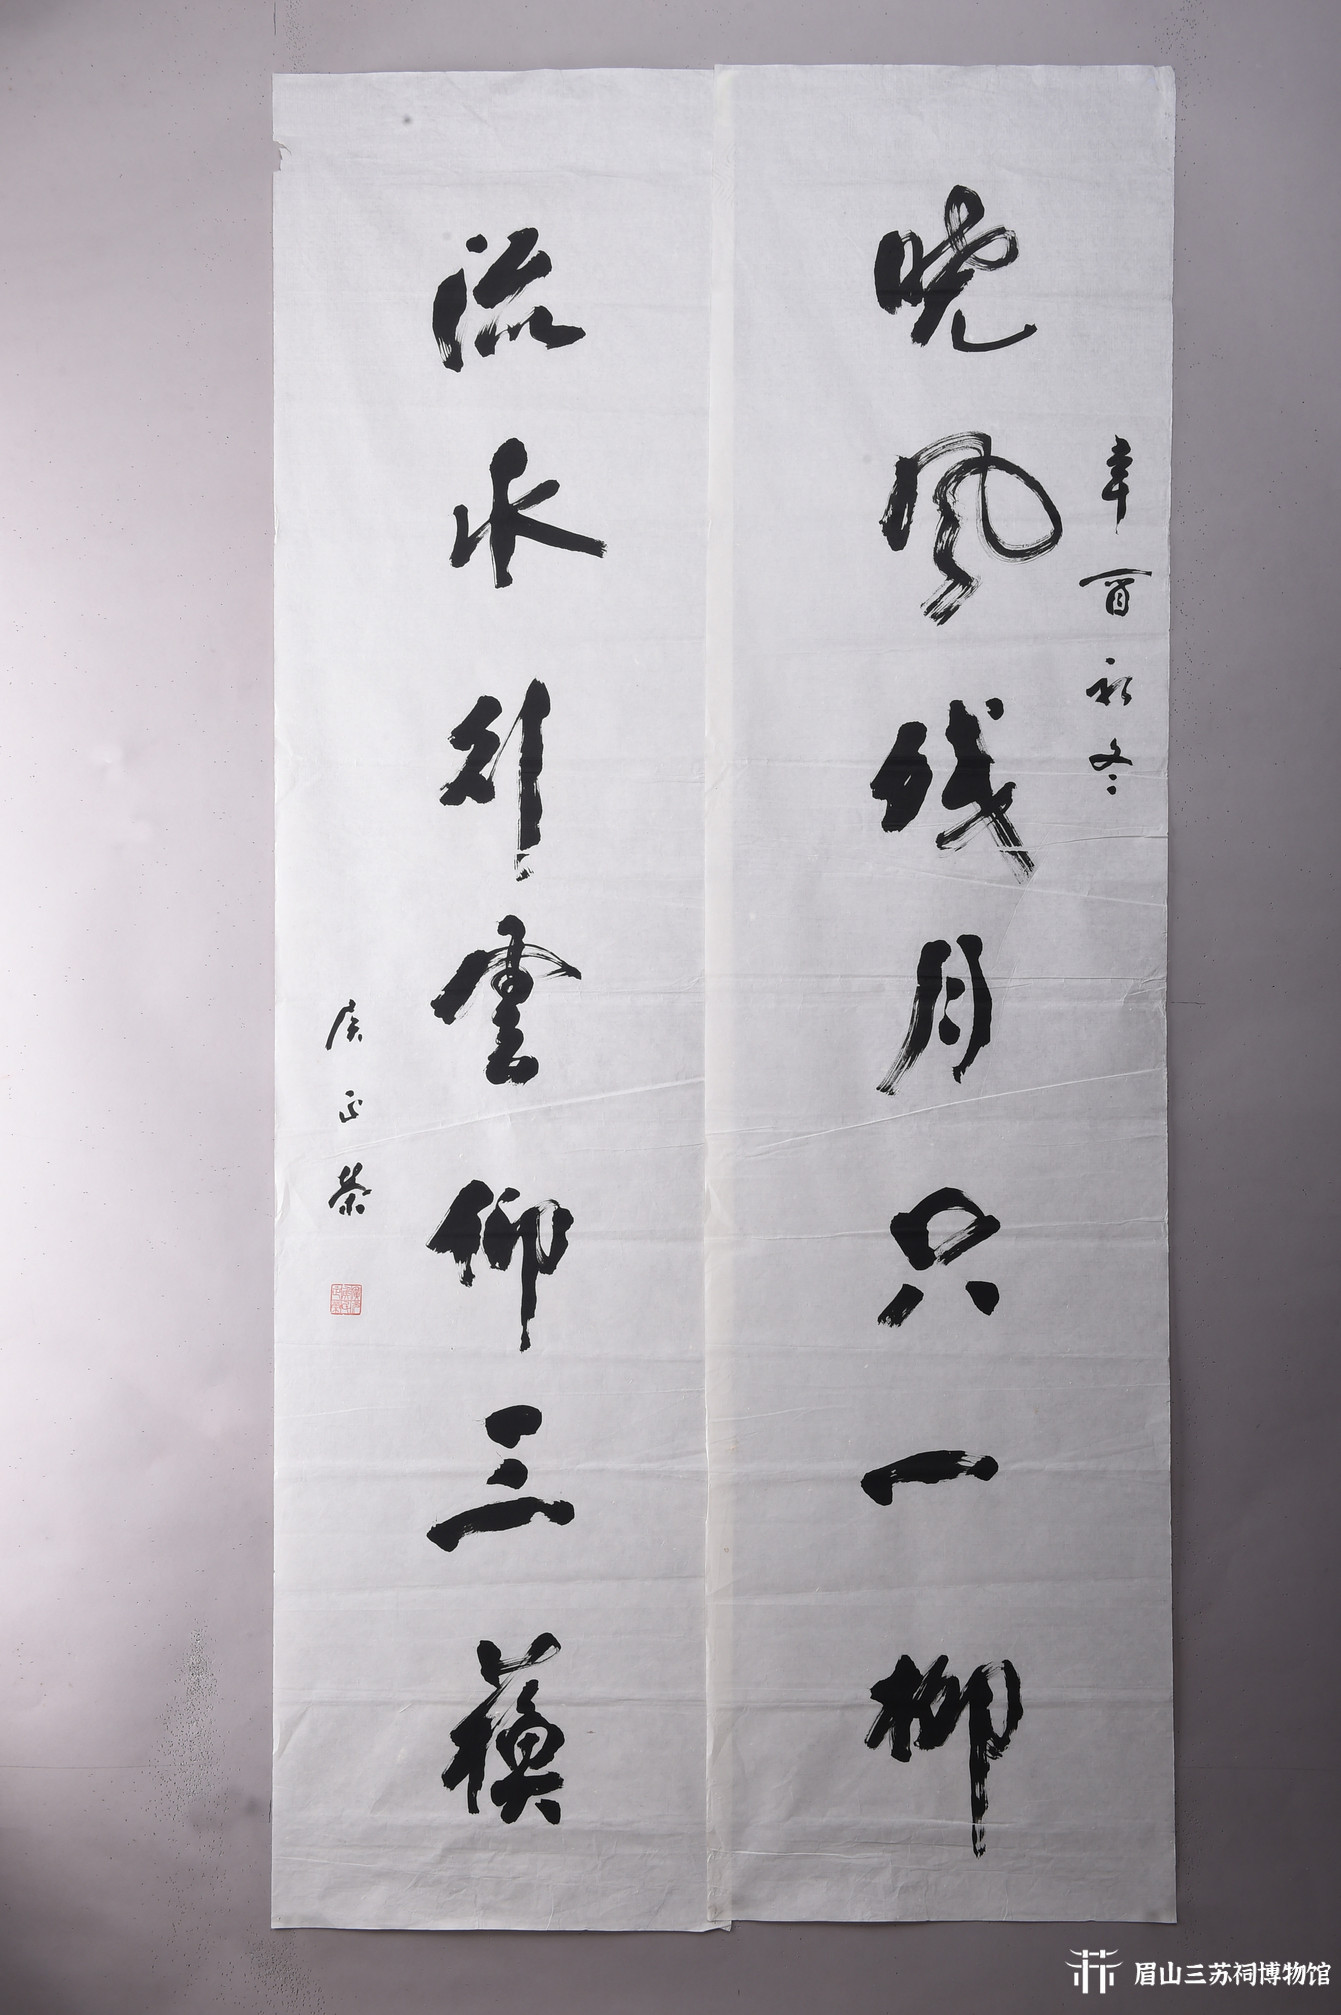 辛酉初冬
晓风残月只一柳
流水行雲仰三蘇
侯正荣
眉山三苏祠博物馆